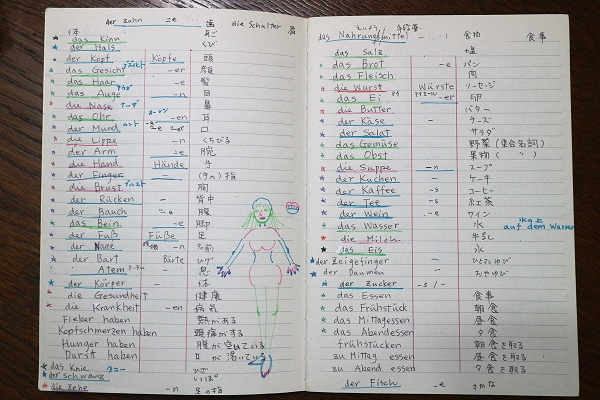 der Zahn ⸚e 歯 die Schulter 肩
体
das Kinn あご
der Hals くび
der Kopf Köpfe 頭
das Gesicht -er 顔
das Haar -e 髪
das Auge -n 目
die Nase 鼻
das Ohr -en 耳
der Mund 口
die Lippe -n くちびる
der Arm -e 腕
die Hand Hände 手
der Finger - (手の)指
die Brust 胸
der Rücken - 背中
der Bauch ⸚e 腹
das Bein -e 脚
der Fuß Füße 足
der Name -n 名前
der Bart Bärte ヒゲ
Atem 息
der Körper - 体
die Gesundheit 健康
die Krankheit -en 病気
Fieber haben 熱がある
Kopfschmerzen haben 頭痛がする
Hunger haben 腹が空いている
Durst haben 口が渇いている
das Knie クニー ひざ
der Schwanz しっぽ
die Zehe -n 足の指
das Nahrungsmittel - 食物 食事
das Salz 塩
das Brot -e パン
das Fleisch 肉
die Wurst Würste ソーセージ
das Ei -er 卵
die Butter バター
der Käse - チーズ
der Salat サラダ
das Gemüse 野菜(集合名詞)
das Obst 果物( 〃 )
die Suppe -n スープ
der Kuchen - ケーキ
der Kaffee -s コーヒー
der Tee -s 紅茶
der Wein -e ワイン
das Wasser 水 水の上 auf dem Wasser
die Milch 牛乳
das Eis 氷
der Zeigefinger - ひとさしゆび
der Daumen - おやゆび
der Zucker -s / -
das Essen 食事
das Frühstück 朝食
das Mittagessen 昼食
das Abendessen 夕食
frühstücken 朝食を取る
zu Mittag essen 昼食を取る
zu Abend essen 夕食を取る
der Fisch -e さかな